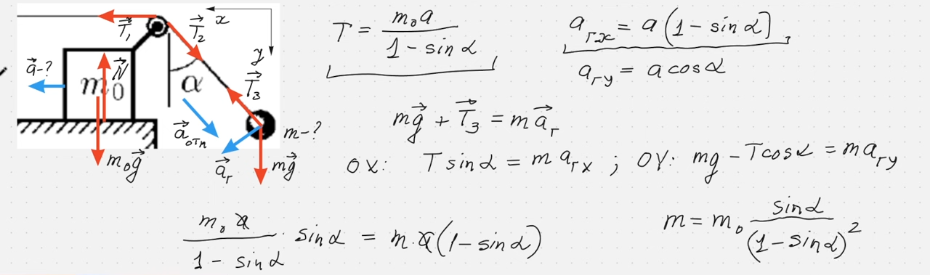 x
T⃗₁
T⃗₂
y
a⃗-?
N⃗
m₀
α
T⃗₃
a⃗отн
m-?
a⃗г
m₀g⃗
mg⃗
T = m₀a / (1 - sin α)
aгx = a(1 - sin α)
aгy = a cos α
mg⃗ + T⃗₃ = ma⃗г
OX: T sin α = m aгx ; OY: mg - T cos α = m aгy
m₀ a / (1 - sin α) · sin α = m · a(1 - sin α)
m = m₀ sin α / (1 - sin α)²